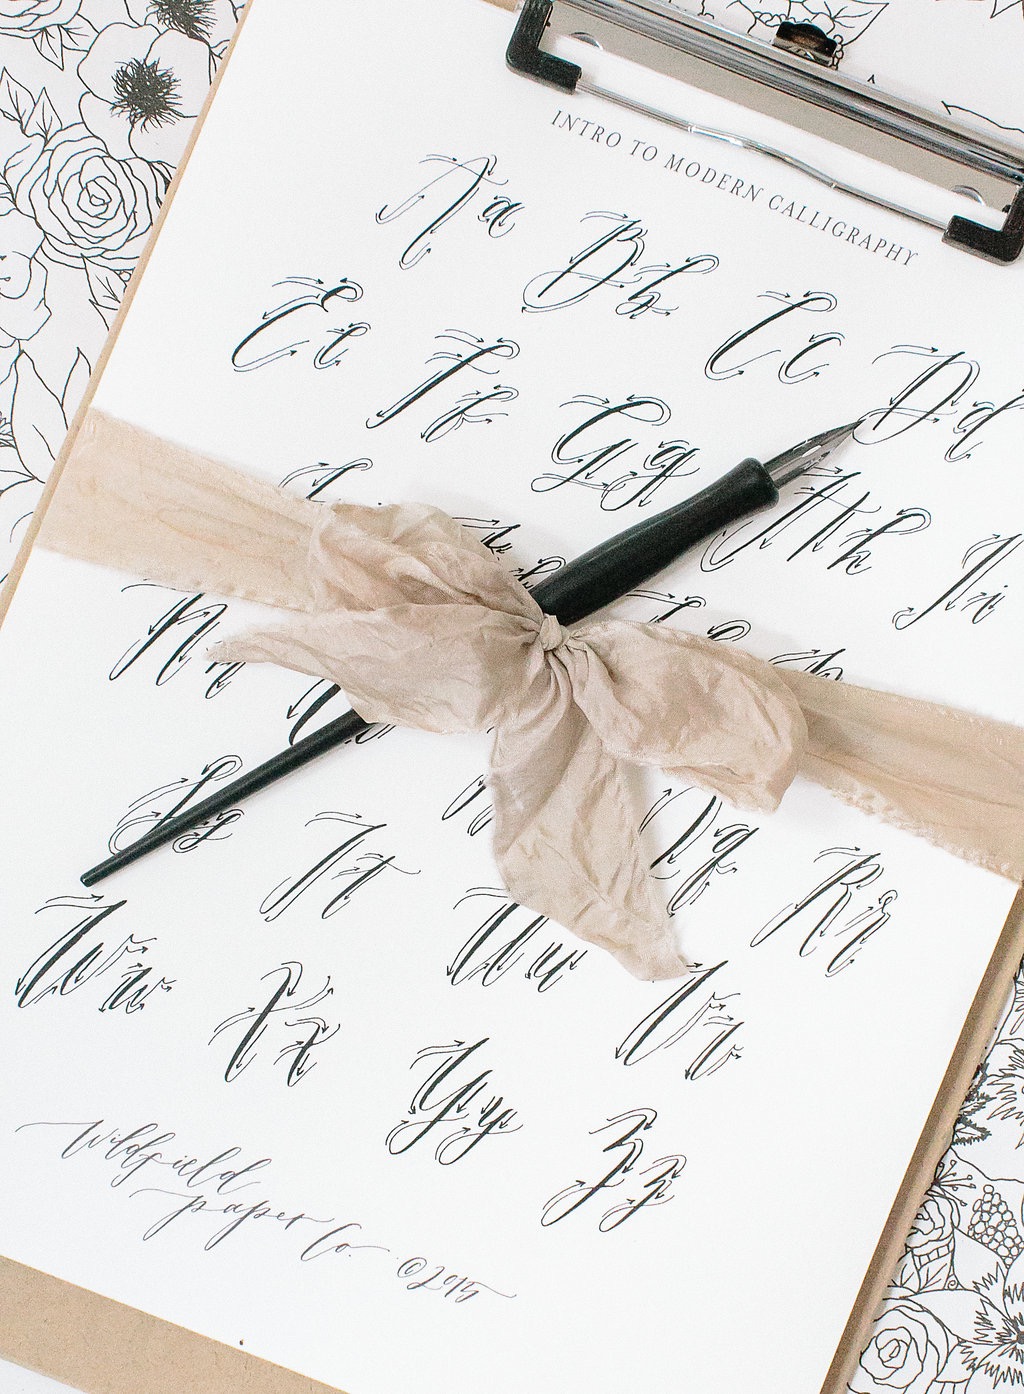 INTRO TO MODERN CALLIGRAPHY
Aa Bb Cc Dd
Ee Ff Gg Hh Ii
Nn
Ss Tt Uu Qq Rr
Ww Xx Yy Vv Zz
Wildfield
Paper Co. ©2015